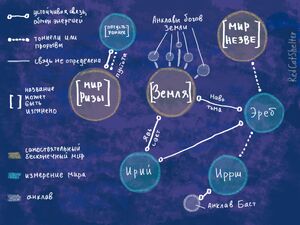 устойчивая связь,
обмен энергией
тоннели или
прорывы
связь не определена
[ ] название
может
быть
изменено
самостоятельный
бесконечный мир
измерение мира
анклав
пустота
[МИР
РИЗЫ]
Анклавы богов
земли
[ЗЕМЛЯ]
[МИР
НЕЗВЕ]
Навь
тьма
Эреб
Явь
свет
Ирий
Ирш
Анклав Баст
RedCatShelter